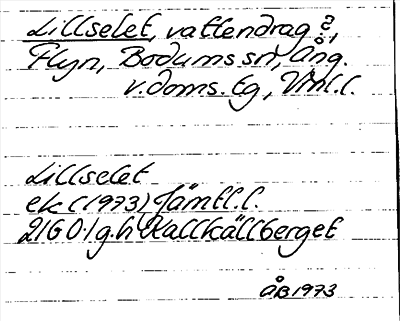 Lillselet, vattendrag?,
Flyn, Bodums sn, Ång.
v.doms. tg, Vnl.l.
Lillselet
ek (1973) Jämtl.l.
21G 0-1 g.h Kallkällberget
ÅB 1973